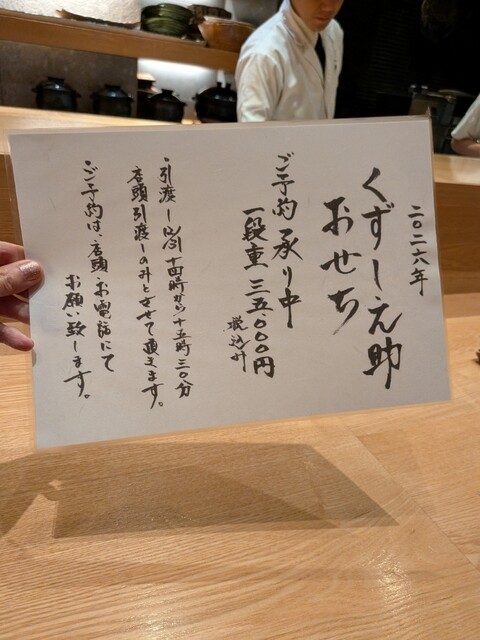 二〇二六年
くずし之助
おせち
ご予約承り中
一段重 三五、〇〇〇円
税込み
・引渡し 12/31 十四時から十五時三〇分
店頭引渡しのみとさせて頂きます。
・ご予約は、店頭、お電話にて
お願い致します。